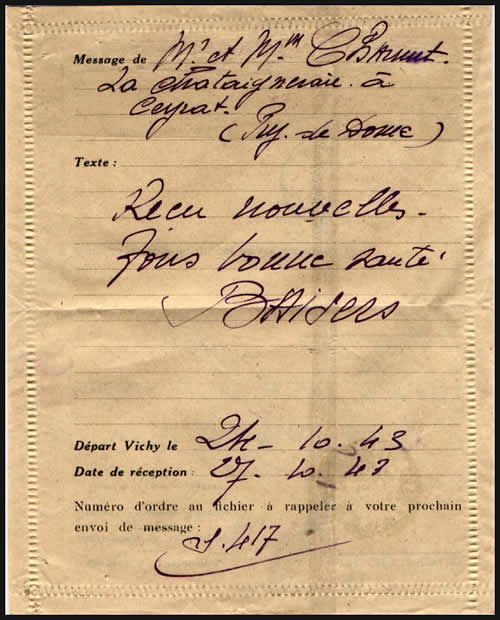 Message de Mr et Mme
La Chataigneraie. à
Ceyrat.
(Puy. de Dome)
Texte :
Recu nouvelles.
Tous bonne santé.
Baisers
Départ Vichy le 24 - 10. 43
Date de réception : 27. 10. 43
Numéro d'ordre au fichier à rappeler à votre prochain
envoi de message :
J. 417